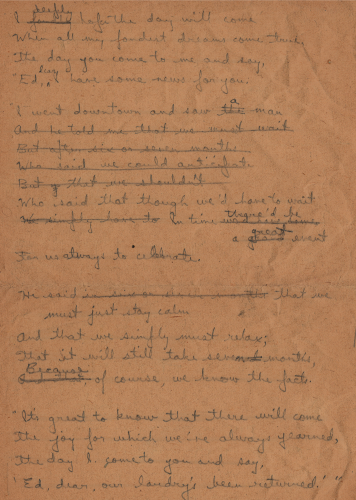 deeply
I firmly hope the day will come
When all my fondest dreams come true,
The day you come to me and say,
"Ed, I have some news for you.
I went downtown and saw the a man
And he told me that we must wait
But after six or seven months
Who said we could anticipate
But that we shouldn't
Who said that though we'd have to wait
We simply have to In time there'd be
a grand great event
For us always to celebrate.
He said that we
must just stay calm
And that we simply must relax;
That it will still take several months,
Because of course, we know the facts.
"It's great to know that there will come
The joy for which we've always yearned,
The day I come to you and say,
'Ed, dear, our laundry's been returned.'"